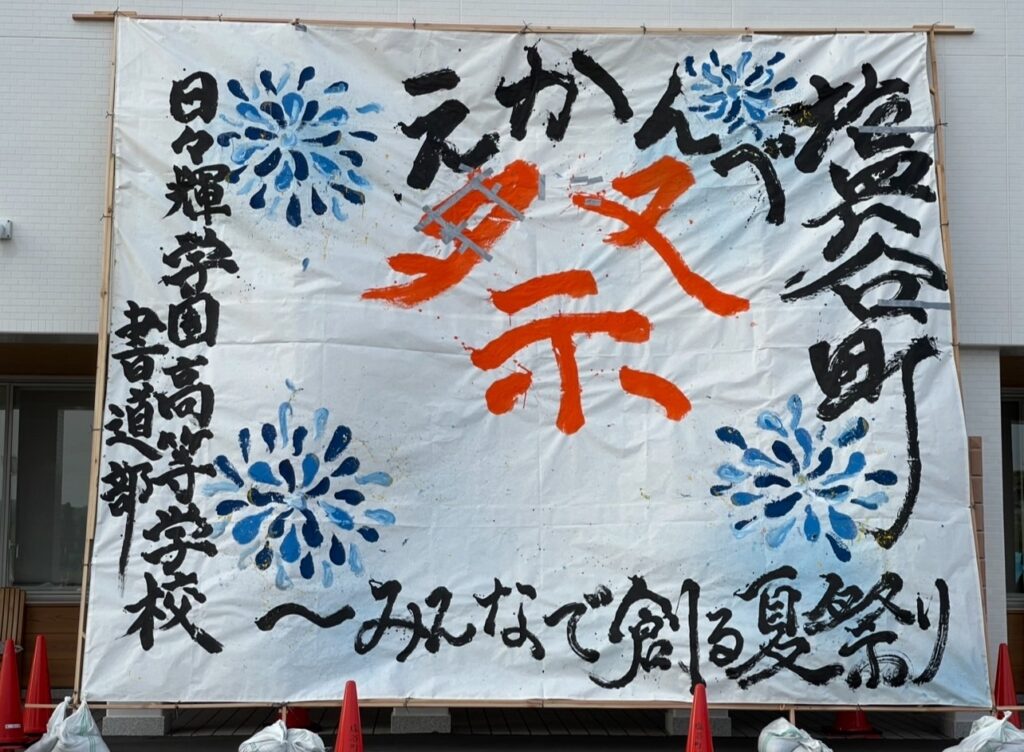 塩谷町
えかんべ
祭
〜みんなで創る夏祭り
日々輝学園高等学校
書道部